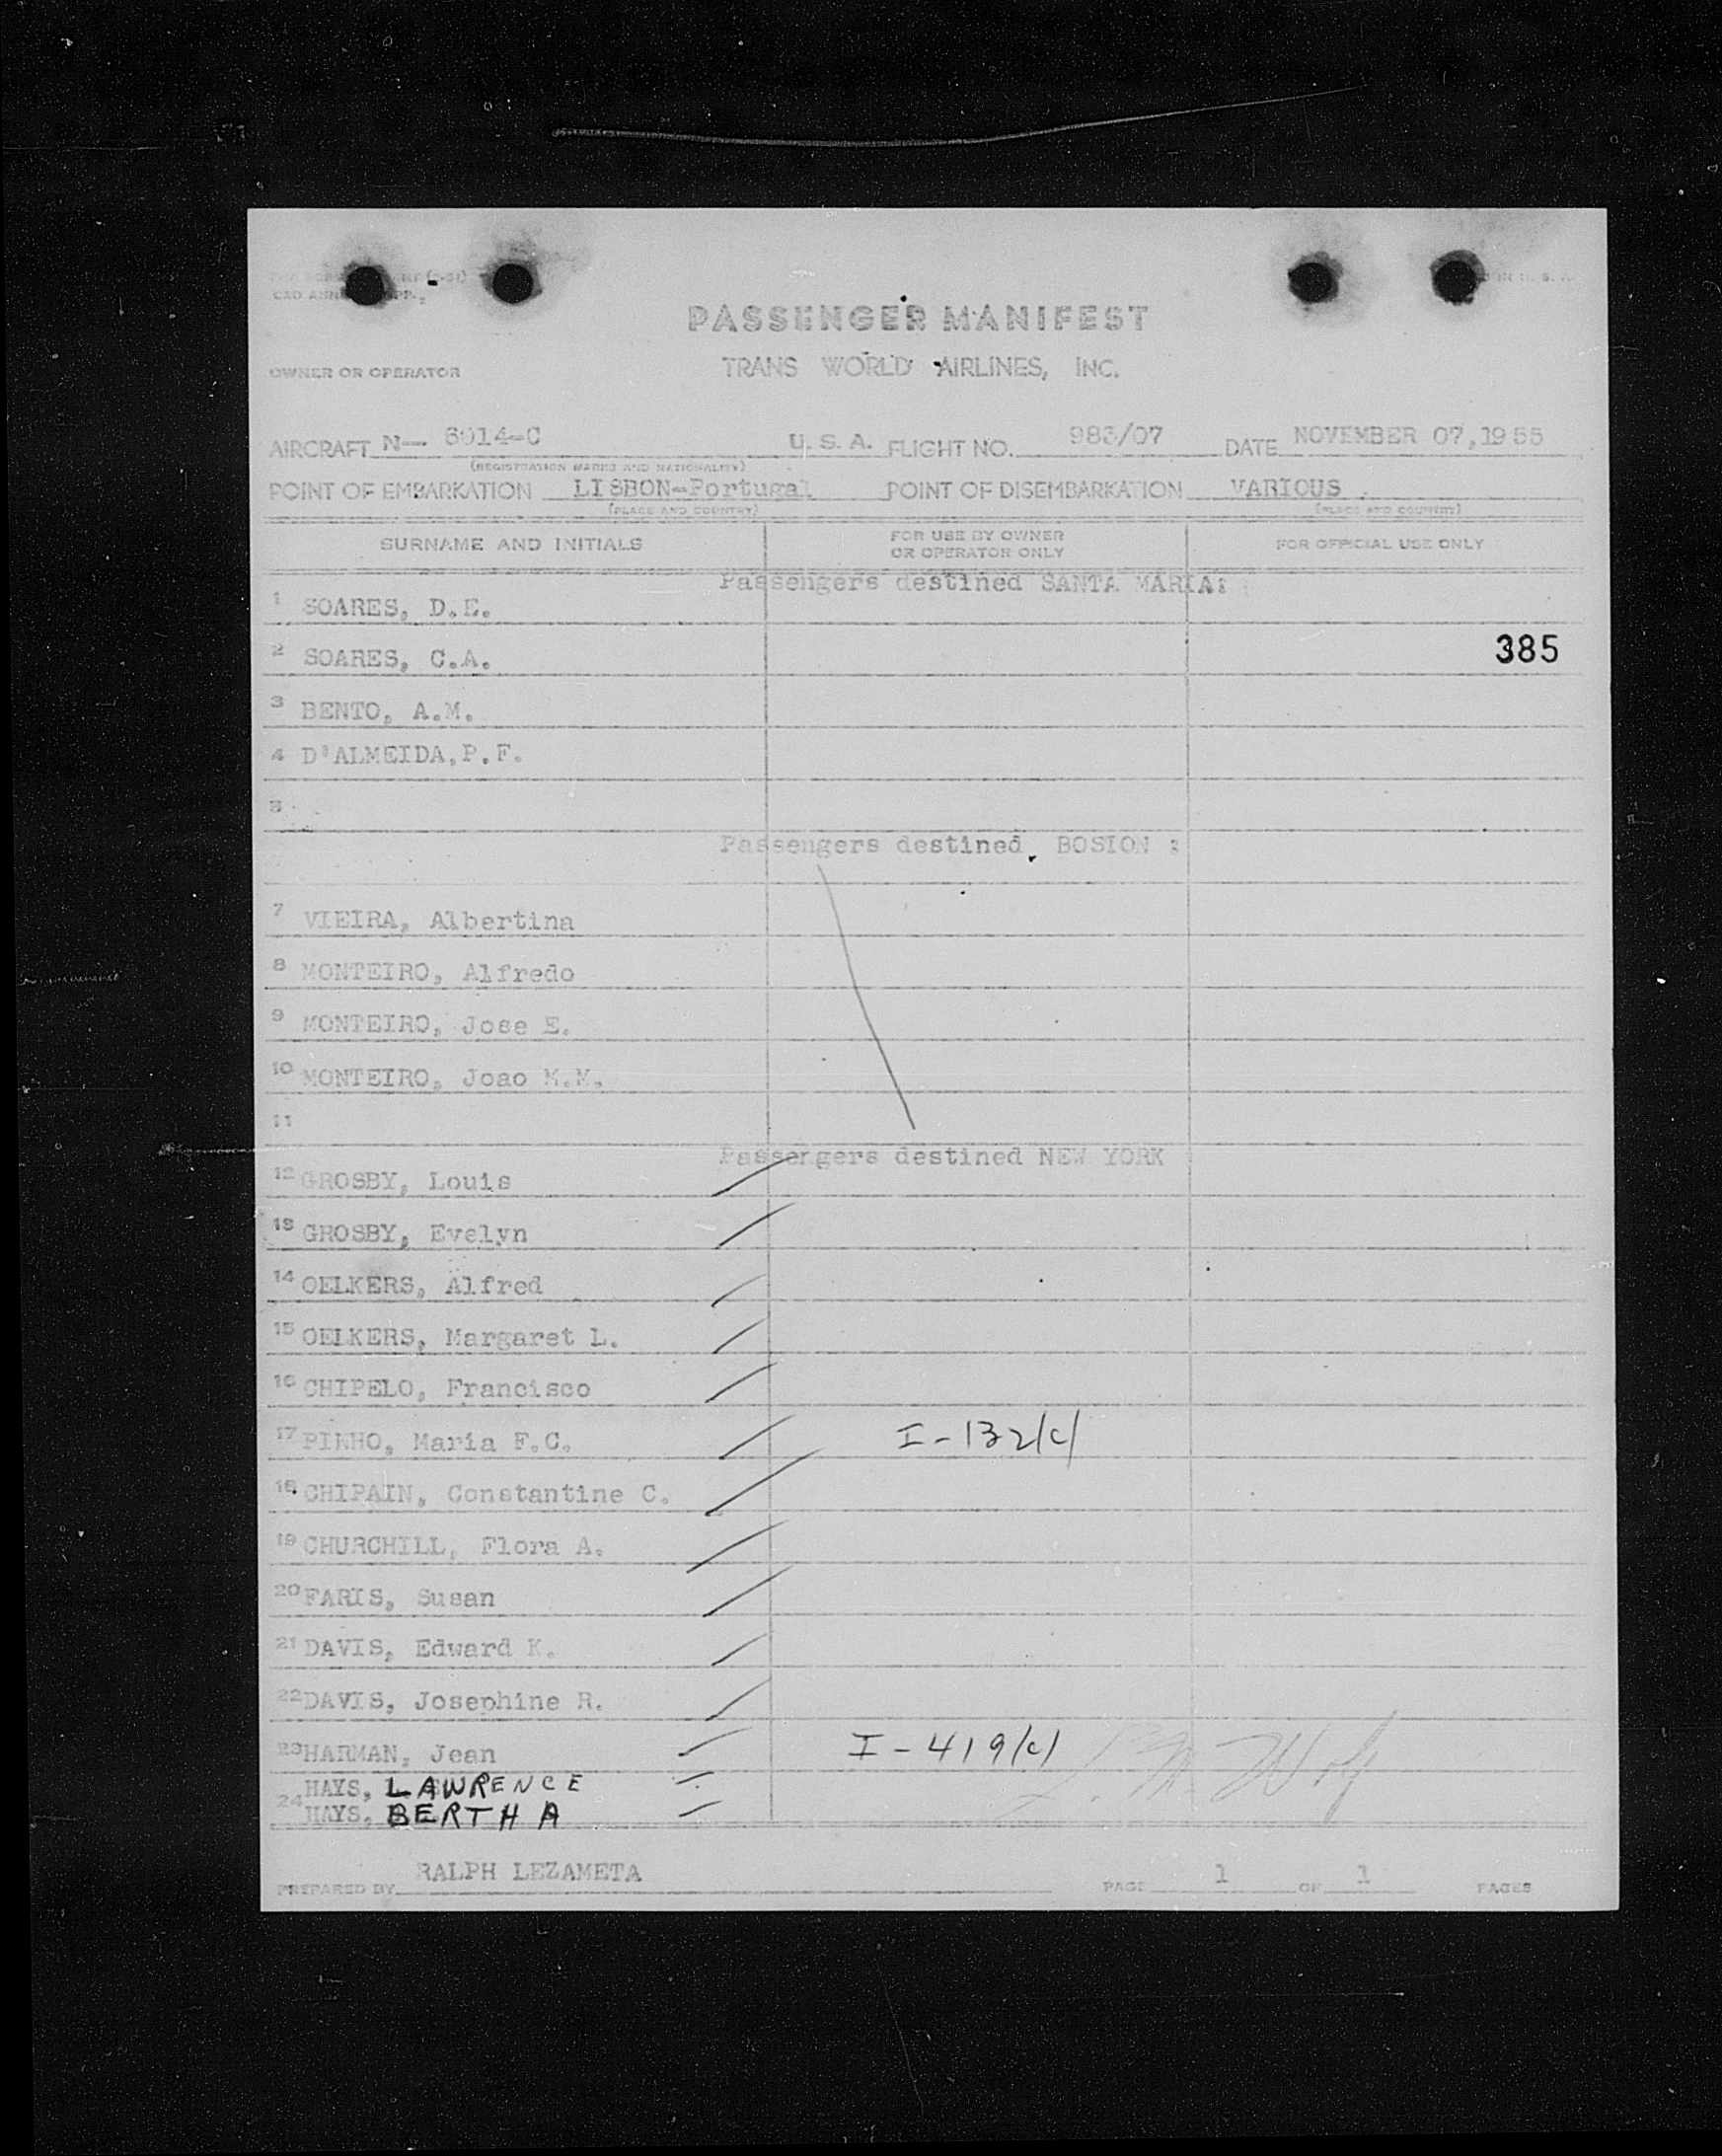 PASSENGER MANIFEST
OWNER OR OPERATOR TRANS WORLD AIRLINES, INC.
AIRCRAFT N— 6014-C U.S.A. FLIGHT NO. 983/07 DATE NOVEMBER 07,1955
(REGISTRATION MARKS AND NATIONALITY)
POINT OF EMBARKATION LISBON-Portugal POINT OF DISEMBARKATION VARIOUS
(PLACE AND COUNTRY) (PLACE AND COUNTRY)
SURNAME AND INITIALS FOR USE BY OWNER OR OPERATOR ONLY FOR OFFICIAL USE ONLY
Passengers destined SANTA MARIA:
1 SOARES, D.E.
2 SOARES, C.A. 385
3 BENTO, A.M.
4 D'ALMEIDA,P.F.
5
Passengers destined BOSTON :
7 VIEIRA, Albertina
8 MONTEIRO, Alfredo
9 MONTEIRO, Jose E.
10 MONTEIRO, Joao M.M.
11
Passengers destined NEW YORK
12 GROSBY, Louis
13 GROSBY, Evelyn
14 OELKERS, Alfred
15 OELKERS, Margaret L.
16 CHIPELO, Francisco
17 PINHO, Maria F.C. I-132(c)
18 CHIPAIN, Constantine C.
19 CHURCHILL, Flora A.
20 FARIS, Susan
21 DAVIS, Edward K.
22 DAVIS, Josephine R.
23 HARMAN, Jean I-419(c)
HAYS, LAWRENCE
24 HAYS, BERTHA
PREPARED BY RALPH LEZAMETA PAGE 1 OF 1 PAGES